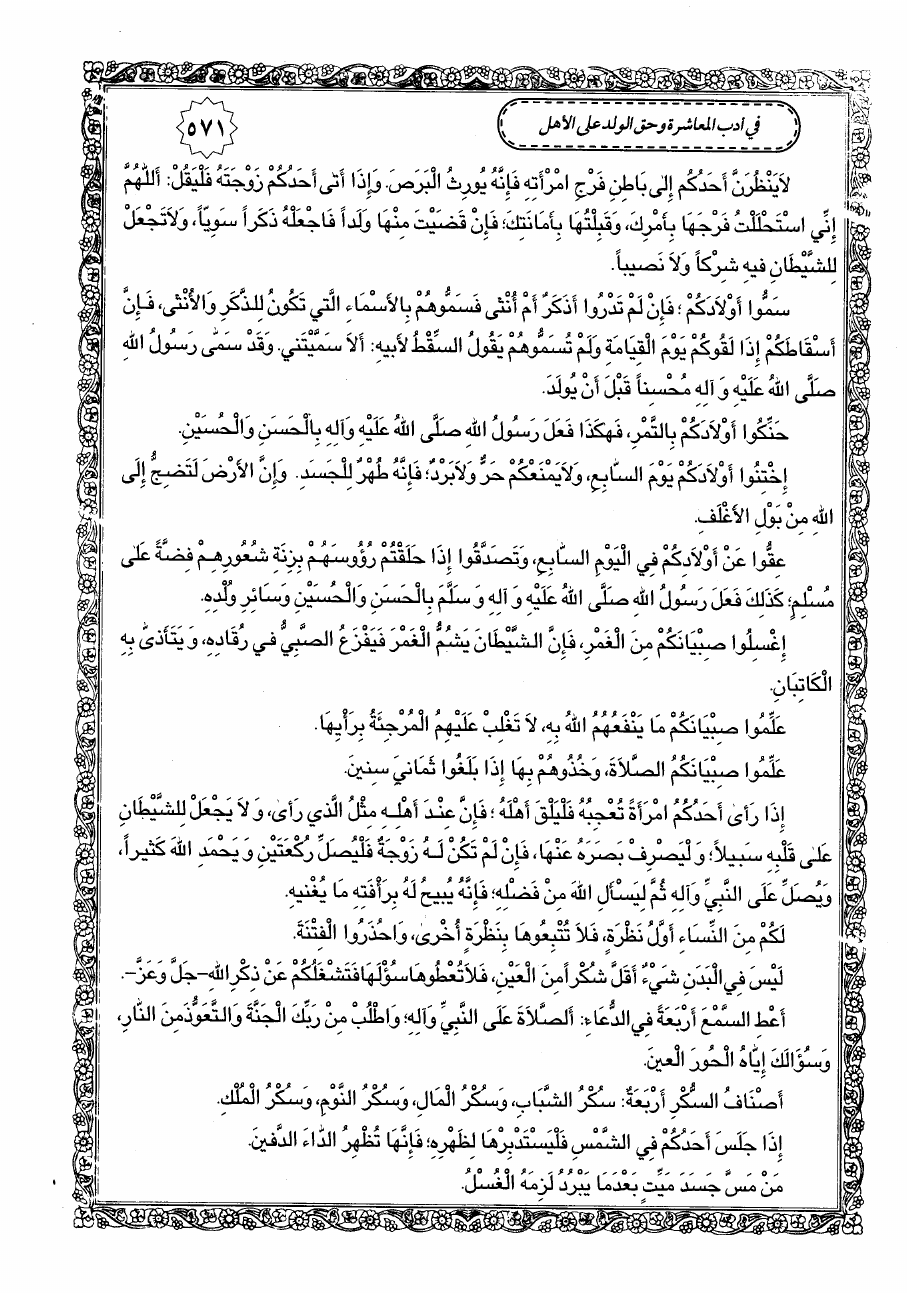 في أدب المعاشرة وحق الولد على الأهل
٥٧١
لاَيَنْظُرَنَّ أَحَدُكُم إِلى بَاطِنِ فَرْجِ امْرْأَتِهِ فَإِنَّهُ يُورِثُ الْبَرَصَ. وَإِذَا أَتى أَحَدُكُمْ زَوْجَتَهُ فَلْيَقُلْ: أَللّٰهُمَّ
إِنِّي اسْتَحْلَلْتُ فَرْجَهَا بِأَمْرِكَ، وَقَبِلْتُهَا بِأَمَانَتِكَ؛ فَإِنْ قَضَيْتَ مِنْهَا وَلَداً فَاجْعَلْهُ ذَكَراً سَوِيّاً، وَلاَتَجْعَلْ
لِلشَّيْطَانِ فيهِ شِرْكاً وَلاَ نَصيباً.
سَمُّوا أَوْلاَدَكُمْ؛ فَإِنْ لَمْ تَدْرُوا أَذَكَرٌ أَمْ أُنْثى فَسَمُّوهُمْ بِالأَسْمَاءِ الَّتي تَكُونُ لِلذَّكَرِ وَالأُنْثى، فَإِنَّ
أَسْقَاطَكُمْ إِذَا لَقُوكُمْ يَوْمَ الْقِيَامَةِ وَلَمْ تُسَمُّوهُمْ يَقُولُ السِّقْطُ لأَبيهِ: أَلاَ سَمَّيْتَني. وَقَدْ سَمّى رَسُولُ اللهِ
صَلَّى اللهُ عَلَيْهِ وَ آلِهِ مُحْسِناً قَبْلَ أَنْ يُولَدَ.
حَنِّكُوا أَوْلاَدَكُمْ بِالتَّمْرِ، فَهكَذَا فَعَلَ رَسُولُ اللهِ صَلَّى اللهُ عَلَيْهِ وَآلِهِ بِالْحَسَنِ وَالْحُسَيْنِ.
إِخْتِنُوا أَوْلاَدَكُمْ يَوْمَ السَّابِعِ، وَلاَيَمْنَعَكُمْ حَرٌّ وَلاَبَرْدٌ؛ فَإِنَّهُ طُهْرٌ لِلْجَسَدِ. وَإِنَّ الأَرْضَ لَتَضِجُّ إِلَى
اللهِ مِنْ بَوْلِ الأَغْلَفِ.
عِقُّوا عَنْ أَوْلاَدِكُمْ فِي الْيَوْمِ السَّابِعِ، وَتَصَدَّقُوا إِذَا حَلَقْتُمْ رُؤُوسَهُمْ بِزِنَةِ شُعُورِهِمْ فِضَّةً عَلى
مُسْلِمٍ؛ كَذَلِكَ فَعَلَ رَسُولُ اللهِ صَلَّى اللهُ عَلَيْهِ وَ آلِهِ وَ سَلَّمَ بِالْحَسَنِ وَالْحُسَيْنِ وَسَائِرِ وُلْدِهِ.
إِغْسِلُوا صِبْيَانَكُمْ مِنَ الْغَمْرِ، فَإِنَّ الشَّيْطَانَ يَشُمُّ الْغَمْرَ فَيَفْزَعُ الصَّبِيُّ في رُقَادِهِ، وَ يَتَأَذّى بِهِ
الْكَاتِبَانِ.
عَلِّمُوا صِبْيَانَكُمْ مَا يَنْفَعُهُمُ اللهُ بِهِ، لاَ تَغْلِبْ عَلَيْهِمُ الْمُرْجِئَةُ بِرَأْيِهَا.
عَلِّمُوا صِبْيَانَكُمُ الصَّلاَةَ، وَخُذُوهُمْ بِهَا إِذَا بَلَغُوا ثَمَانِيَ سِنينَ.
إِذَا رَأى أَحَدُكُمُ امْرَأَةً تُعْجِبُهُ فَلْيَلْقَ أَهْلَهُ؛ فَإِنَّ عِنْدَ أَهْلِهِ مِثْلُ الَّذي رَأى، وَ لاَ يَجْعَلْ لِلشَّيْطَانِ
عَلى قَلْبِهِ سَبيلاً؛ وَ لْيَصْرِفْ بَصَرَهُ عَنْهَا، فَإِنْ لَمْ تَكُنْ لَهُ زَوْجَةٌ فَلْيُصَلِّ رَكْعَتَيْنِ وَ يَحْمَدِ اللهَ كَثيراً،
وَيُصَلِّ عَلَى النَّبِيِّ وَآلِهِ ثُمَّ لِيَسْأَلِ اللهَ مِنْ فَضْلِهِ؛ فَإِنَّهُ يُبيحُ لَهُ بِرَأْفَتِهِ مَا يُغْنيهِ.
لَكُمْ مِنَ النِّسَاءِ أَوَّلُ نَظْرَةٍ، فَلاَ تُتْبِعُوهَا بِنَظْرَةٍ أُخْرى، وَاحْذَرُوا الْفِتْنَةَ.
لَيْسَ فِي الْبَدَنِ شَيْءٌ أَقَلَّ شُكْراً مِنَ الْعَيْنِ، فَلاَتُعْطُوهَا سُؤْلَهَا فَتَشْغَلَكُمْ عَنْ ذِكْرِ اللهِ-جَلَّ وَعَزَّ-.
أَعْطِ السَّمْعَ أَرْبَعَةً فِي الدُّعَاءِ: أَلصَّلاَةَ عَلَى النَّبِيِّ وَآلِهِ؛ وَاطْلُبْ مِنْ رَبِّكَ الْجَنَّةَ وَالتَّعَوُّذَ مِنَ النَّارِ،
وَسُؤَالَكَ إِيَّاهُ الْحُورَ الْعينَ.
أَصْنَافُ السُّكْرِ أَرْبَعَةٌ: سُكْرُ الشَّبَابِ، وَسُكْرُ الْمَالِ، وَسُكْرُ النَّوْمِ، وَسُكْرُ الْمُلْكِ.
إِذَا جَلَسَ أَحَدُكُمْ فِي الشَّمْسِ فَلْيَسْتَدْبِرْهَا لِظَهْرِهِ؛ فَإِنَّهَا تُظْهِرُ الدَّاءَ الدَّفينَ.
مَنْ مَسَّ جَسَدَ مَيِّتٍ بَعْدَمَا يَبْرُدُ لَزِمَهُ الْغُسْلُ.